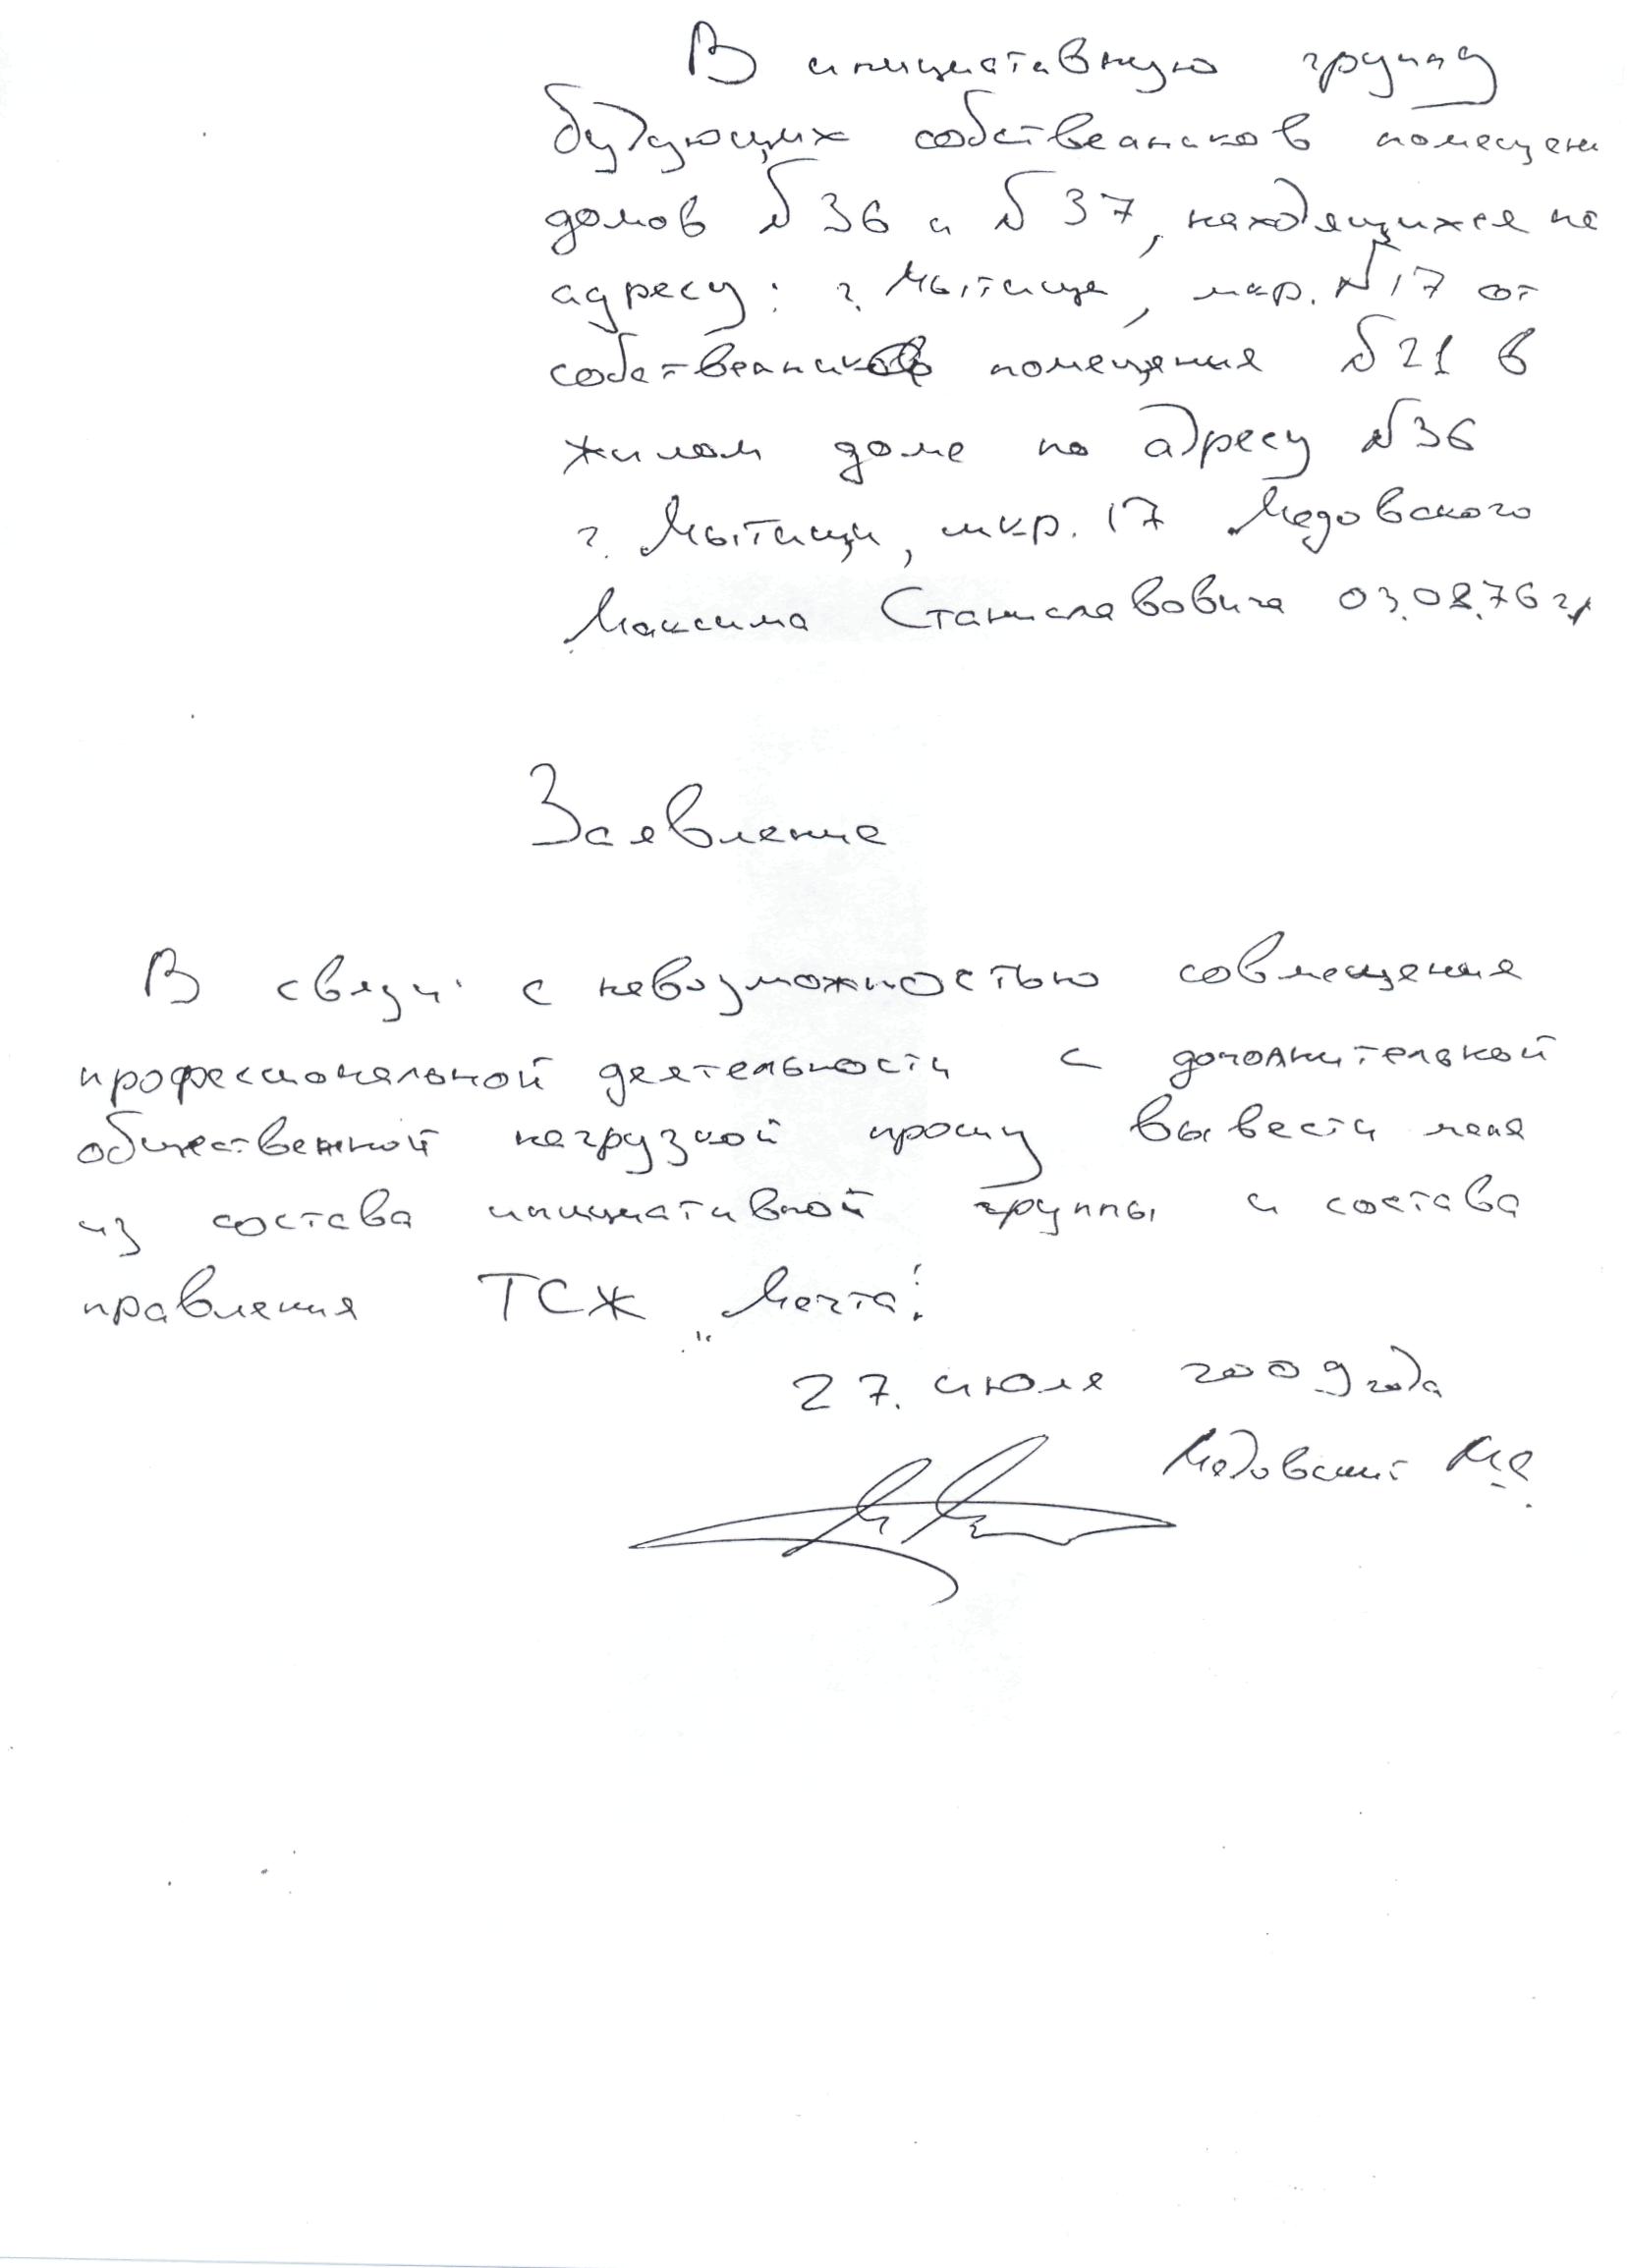 В инициативную группу
будующих собственников помещени
домов № 36 и № 37, находящихся по
адресу: г. Мытищи, мкр. №17 от
собственников помещения №21 в
жилом доме по адресу №36
г. Мытищи, мкр. 17 Медовского
Максима Станиславовича 03.08.76 г.
Заявление
В связи с невозможностью совмещения
профессиональной деятельности с дополнительной
общественной нагрузкой прошу вывести меня
из состава инициативной группы и состава
правления ТСЖ „Мечта".
27. июля 2009 года
Медовский М.С.